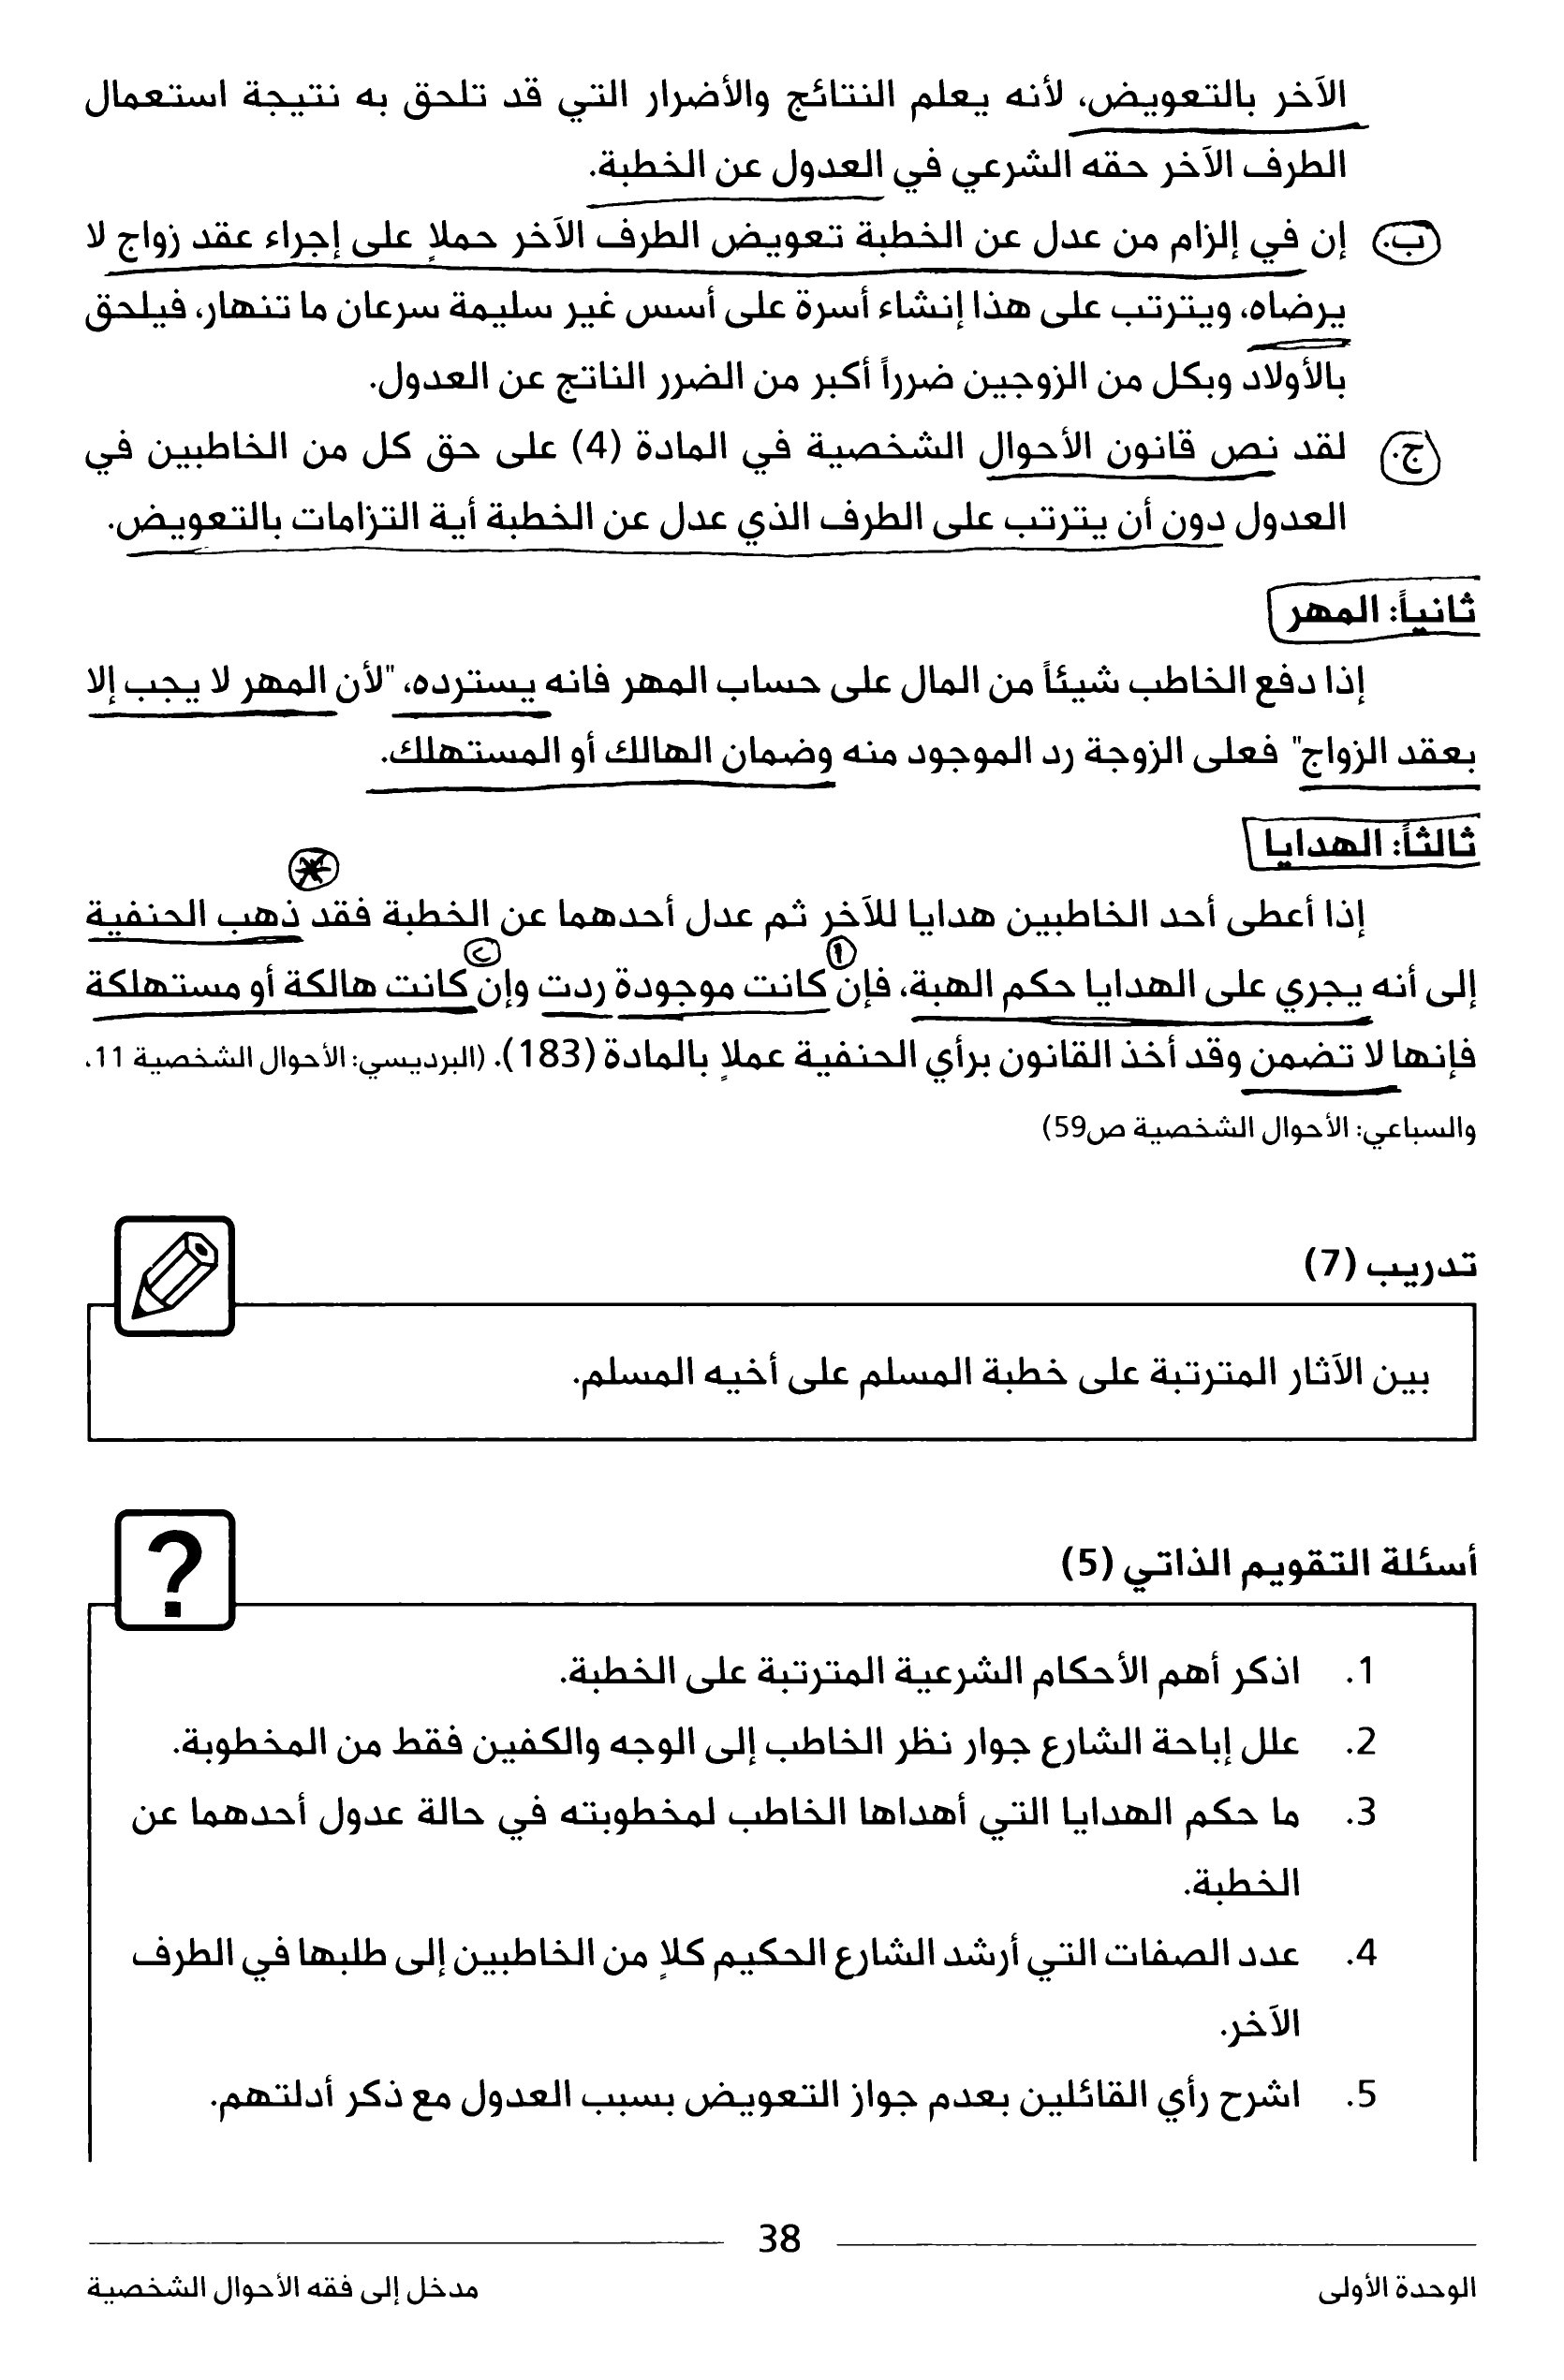 الآخر بالتعويض، لأنه يعلم النتائج والأضرار التي قد تلحق به نتيجة استعمال
الطرف الآخر حقه الشرعي في العدول عن الخطبة.
ب. إن في إلزام من عدل عن الخطبة تعويض الطرف الآخر حملاً على إجراء عقد زواج لا
يرضاه، ويترتب على هذا إنشاء أسرة على أسس غير سليمة سرعان ما تنهار، فيلحق
بالأولاد وبكل من الزوجين ضرراً أكبر من الضرر الناتج عن العدول.
ج. لقد نص قانون الأحوال الشخصية في المادة (4) على حق كل من الخاطبين في
العدول دون أن يترتب على الطرف الذي عدل عن الخطبة أية التزامات بالتعويض.
ثانياً: المهر
إذا دفع الخاطب شيئاً من المال على حساب المهر فانه يسترده، "لأن المهر لا يجب إلا
بعقد الزواج" فعلى الزوجة رد الموجود منه وضمان الهالك أو المستهلك.
ثالثاً: الهدايا
إذا أعطى أحد الخاطبين هدايا للآخر ثم عدل أحدهما عن الخطبة فقد ذهب الحنفية
١ ٢
إلى أنه يجري على الهدايا حكم الهبة، فإن كانت موجودة ردت وإن كانت هالكة أو مستهلكة
فإنها لا تضمن وقد أخذ القانون برأي الحنفية عملاً بالمادة (183). (البرديسي: الأحوال الشخصية 11،
والسباعي: الأحوال الشخصية ص59)
تدريب (7)
بين الآثار المترتبة على خطبة المسلم على أخيه المسلم.
?
أسئلة التقويم الذاتي (5)
1. اذكر أهم الأحكام الشرعية المترتبة على الخطبة.
2. علل إباحة الشارع جوار نظر الخاطب إلى الوجه والكفين فقط من المخطوبة.
3. ما حكم الهدايا التي أهداها الخاطب لمخطوبته في حالة عدول أحدهما عن
الخطبة.
4. عدد الصفات التي أرشد الشارع الحكيم كلاً من الخاطبين إلى طلبها في الطرف
الآخر.
5. اشرح رأي القائلين بعدم جواز التعويض بسبب العدول مع ذكر أدلتهم.
38
الوحدة الأولى
مدخل إلى فقه الأحوال الشخصية